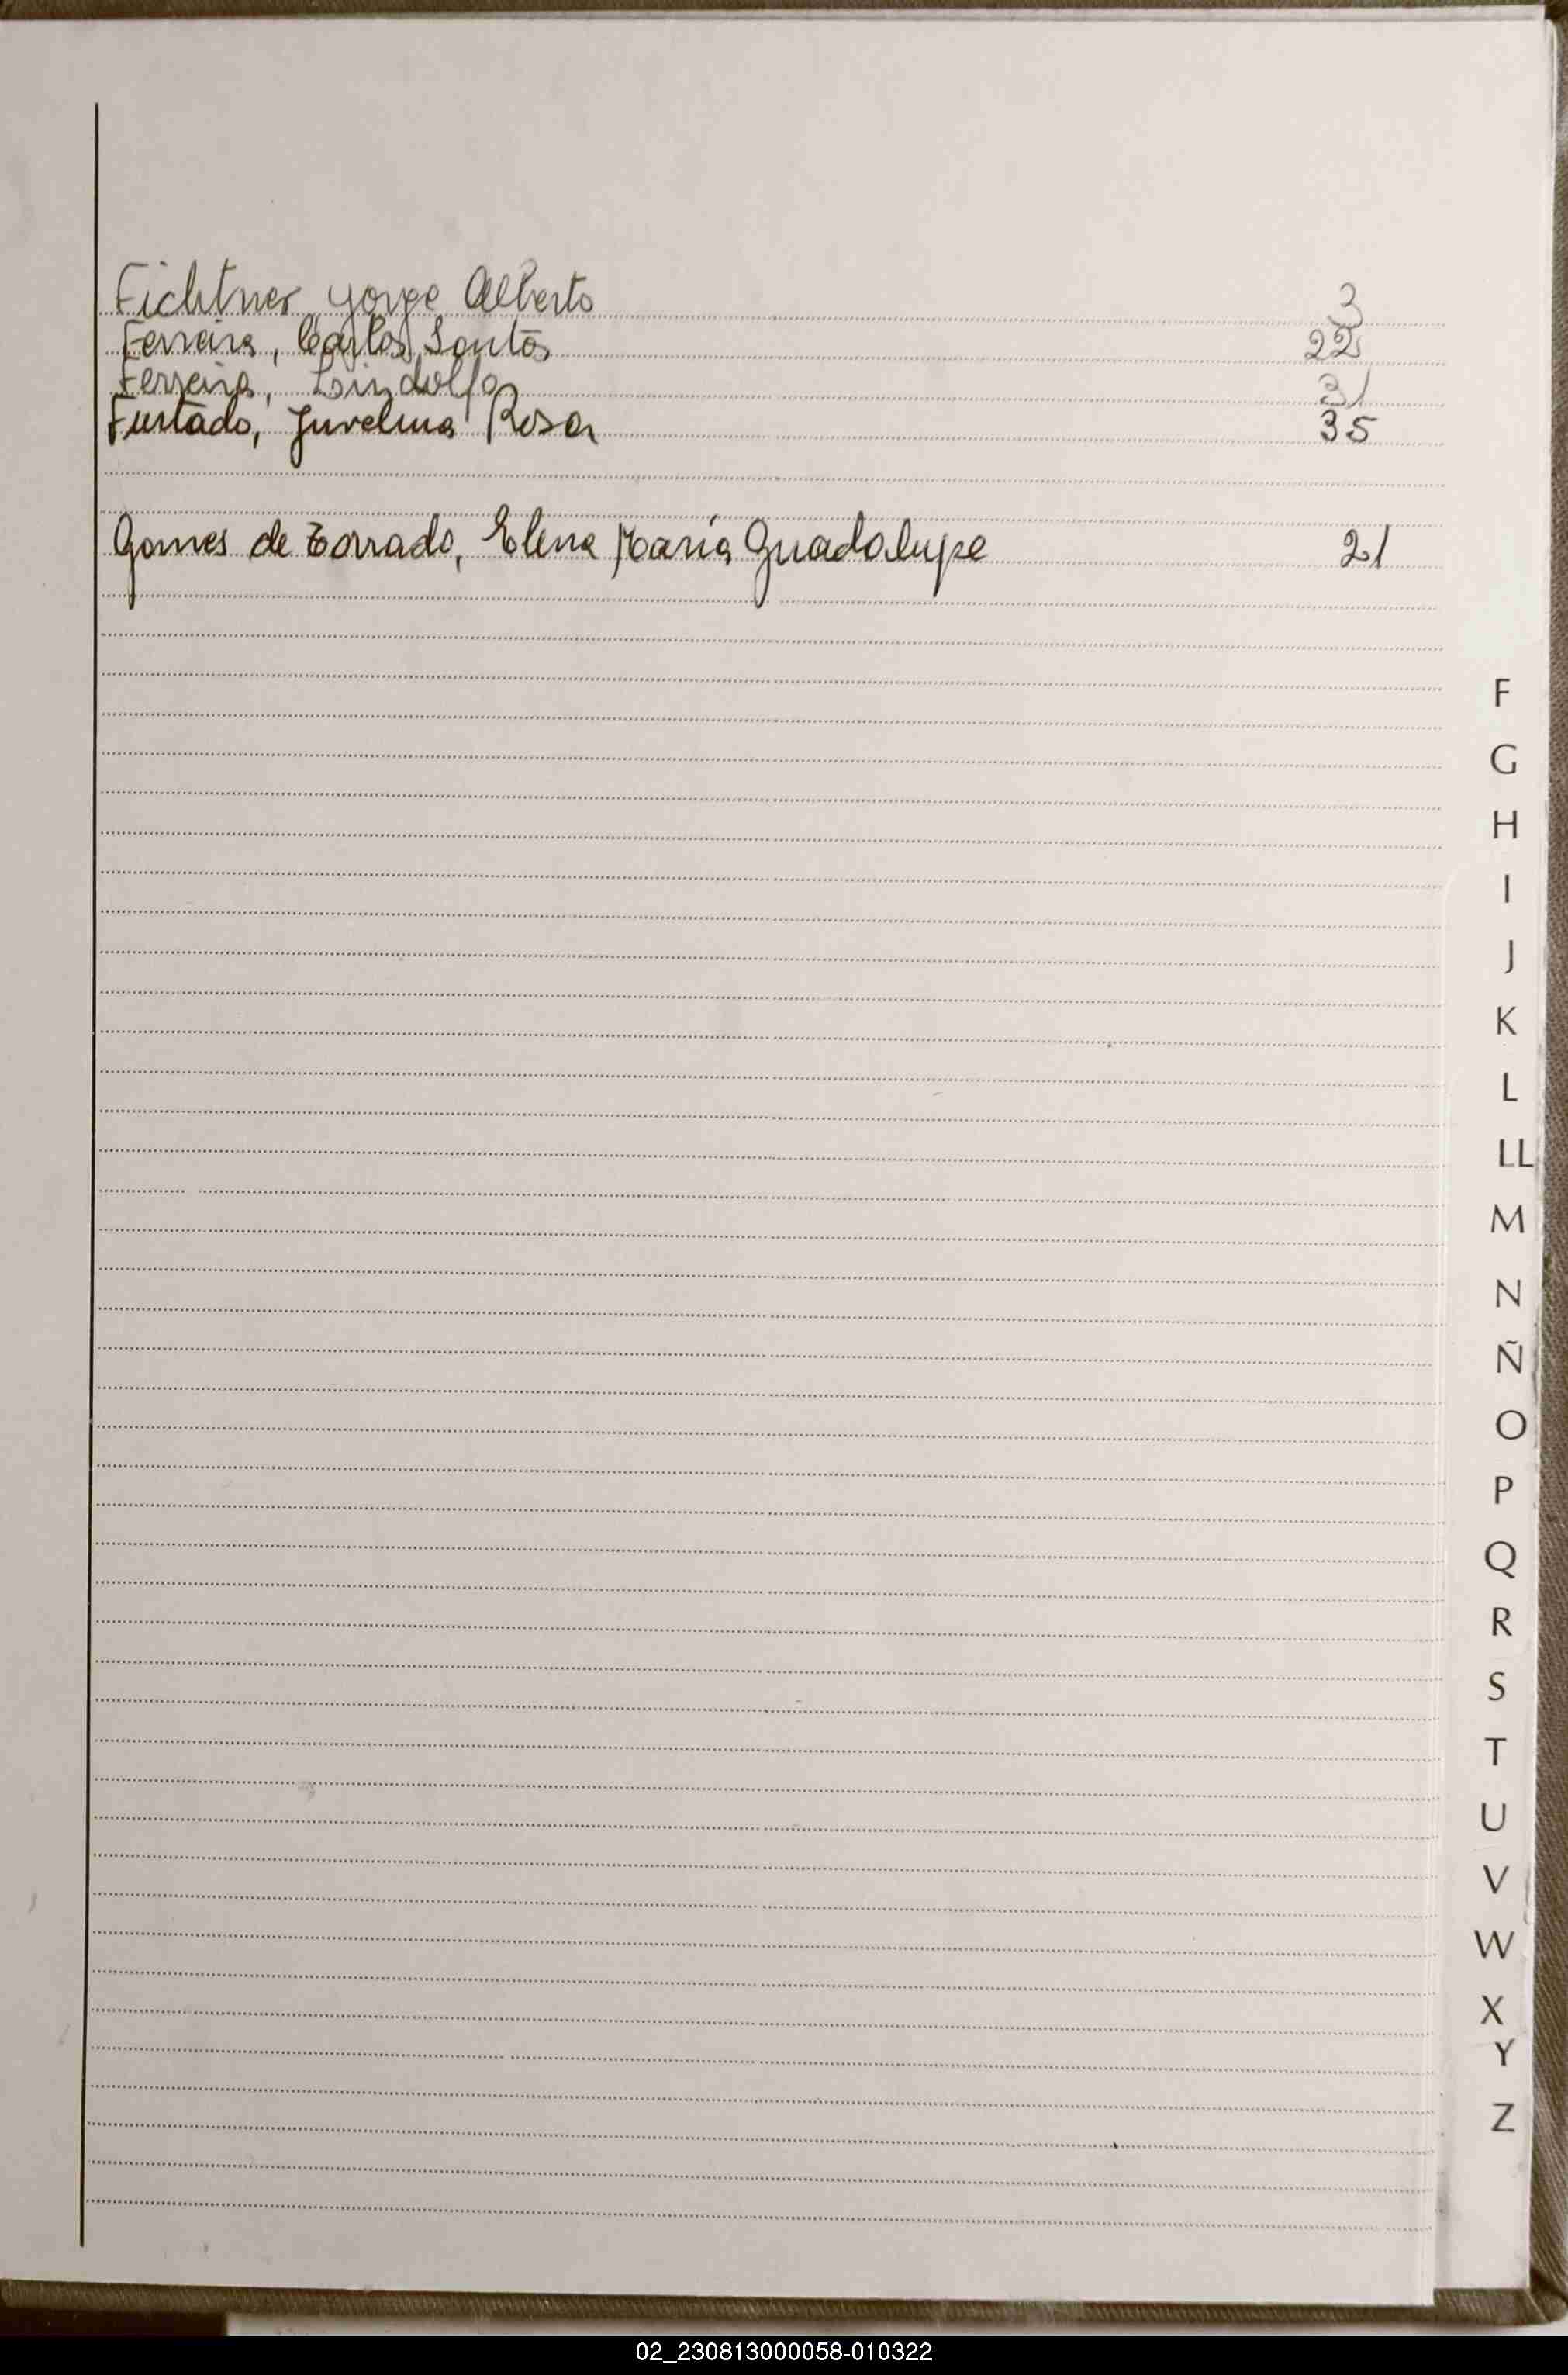 Fichtner, Jorge Alberto 3
Ferreira, Carlos Santos 22
Ferreira, Lindolfo 31
Furtado, Juvelina Rosa 35
Gomes de Torrado, Elena María Guadalupe 21
F
G
H
I
J
K
L
LL
M
N
Ñ
O
P
Q
R
S
T
U
V
W
X
Y
Z
02_230813000058-010322